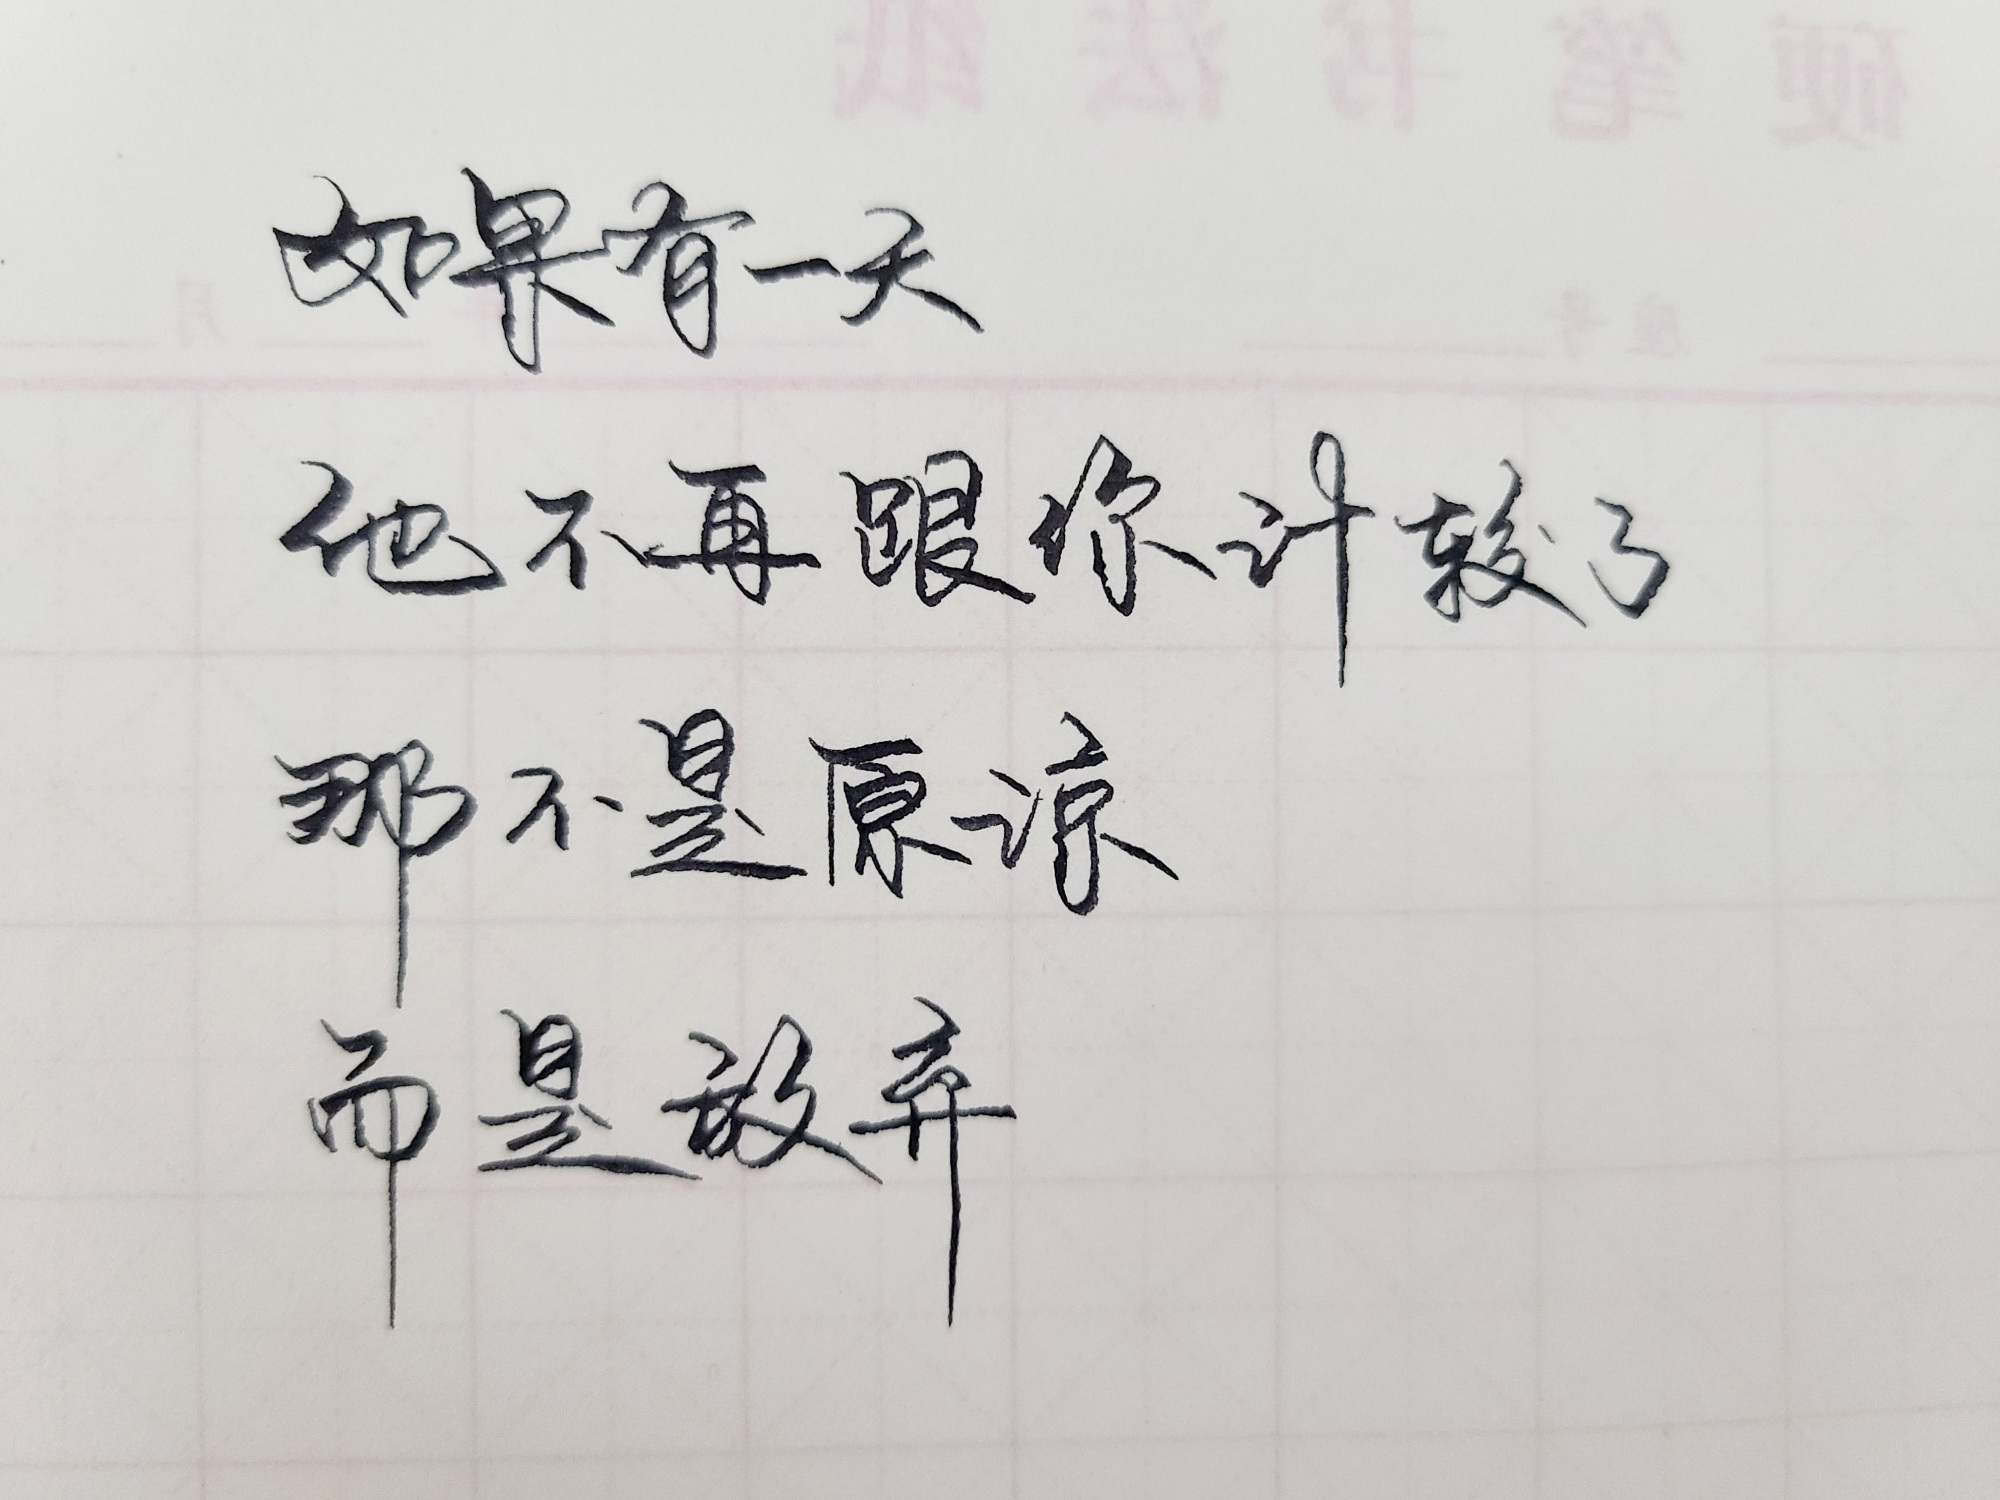 硬笔书法纸
座号 年 月
如果有一天
他不再跟你计较了
那不是原谅
而是放弃